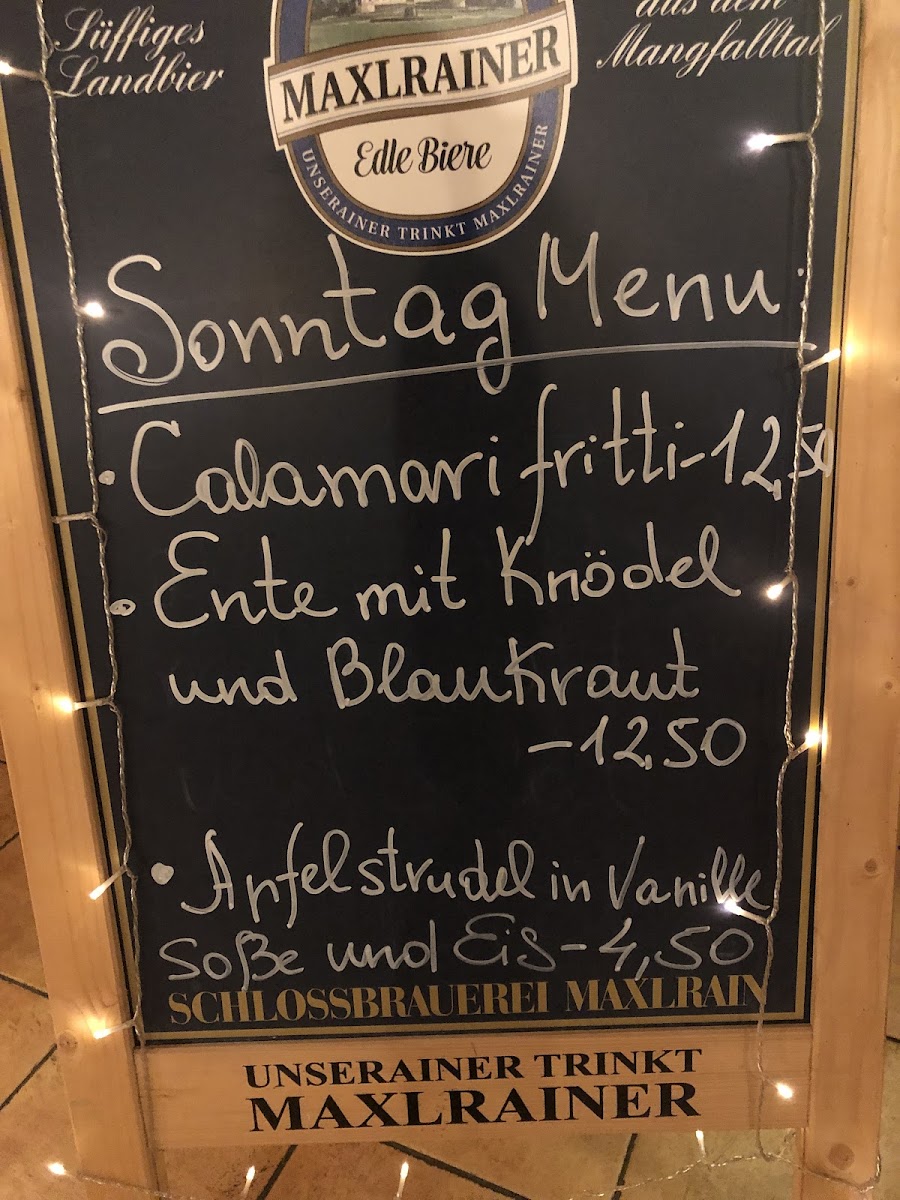 Süffiges
Landbier
aus dem
Mangfalltal
MAXLRAINER
Edle Biere
UNSERAINER TRINKT MAXLRAINER
Sonntag Menu
• Calamari fritti - 12,50
• Ente mit Knödel
und Blaukraut
- 12,50
• Apfelstrudel in Vanille
Soße und Eis - 4,50
SCHLOSSBRAUEREI MAXLRAIN
UNSERAINER TRINKT
MAXLRAINER